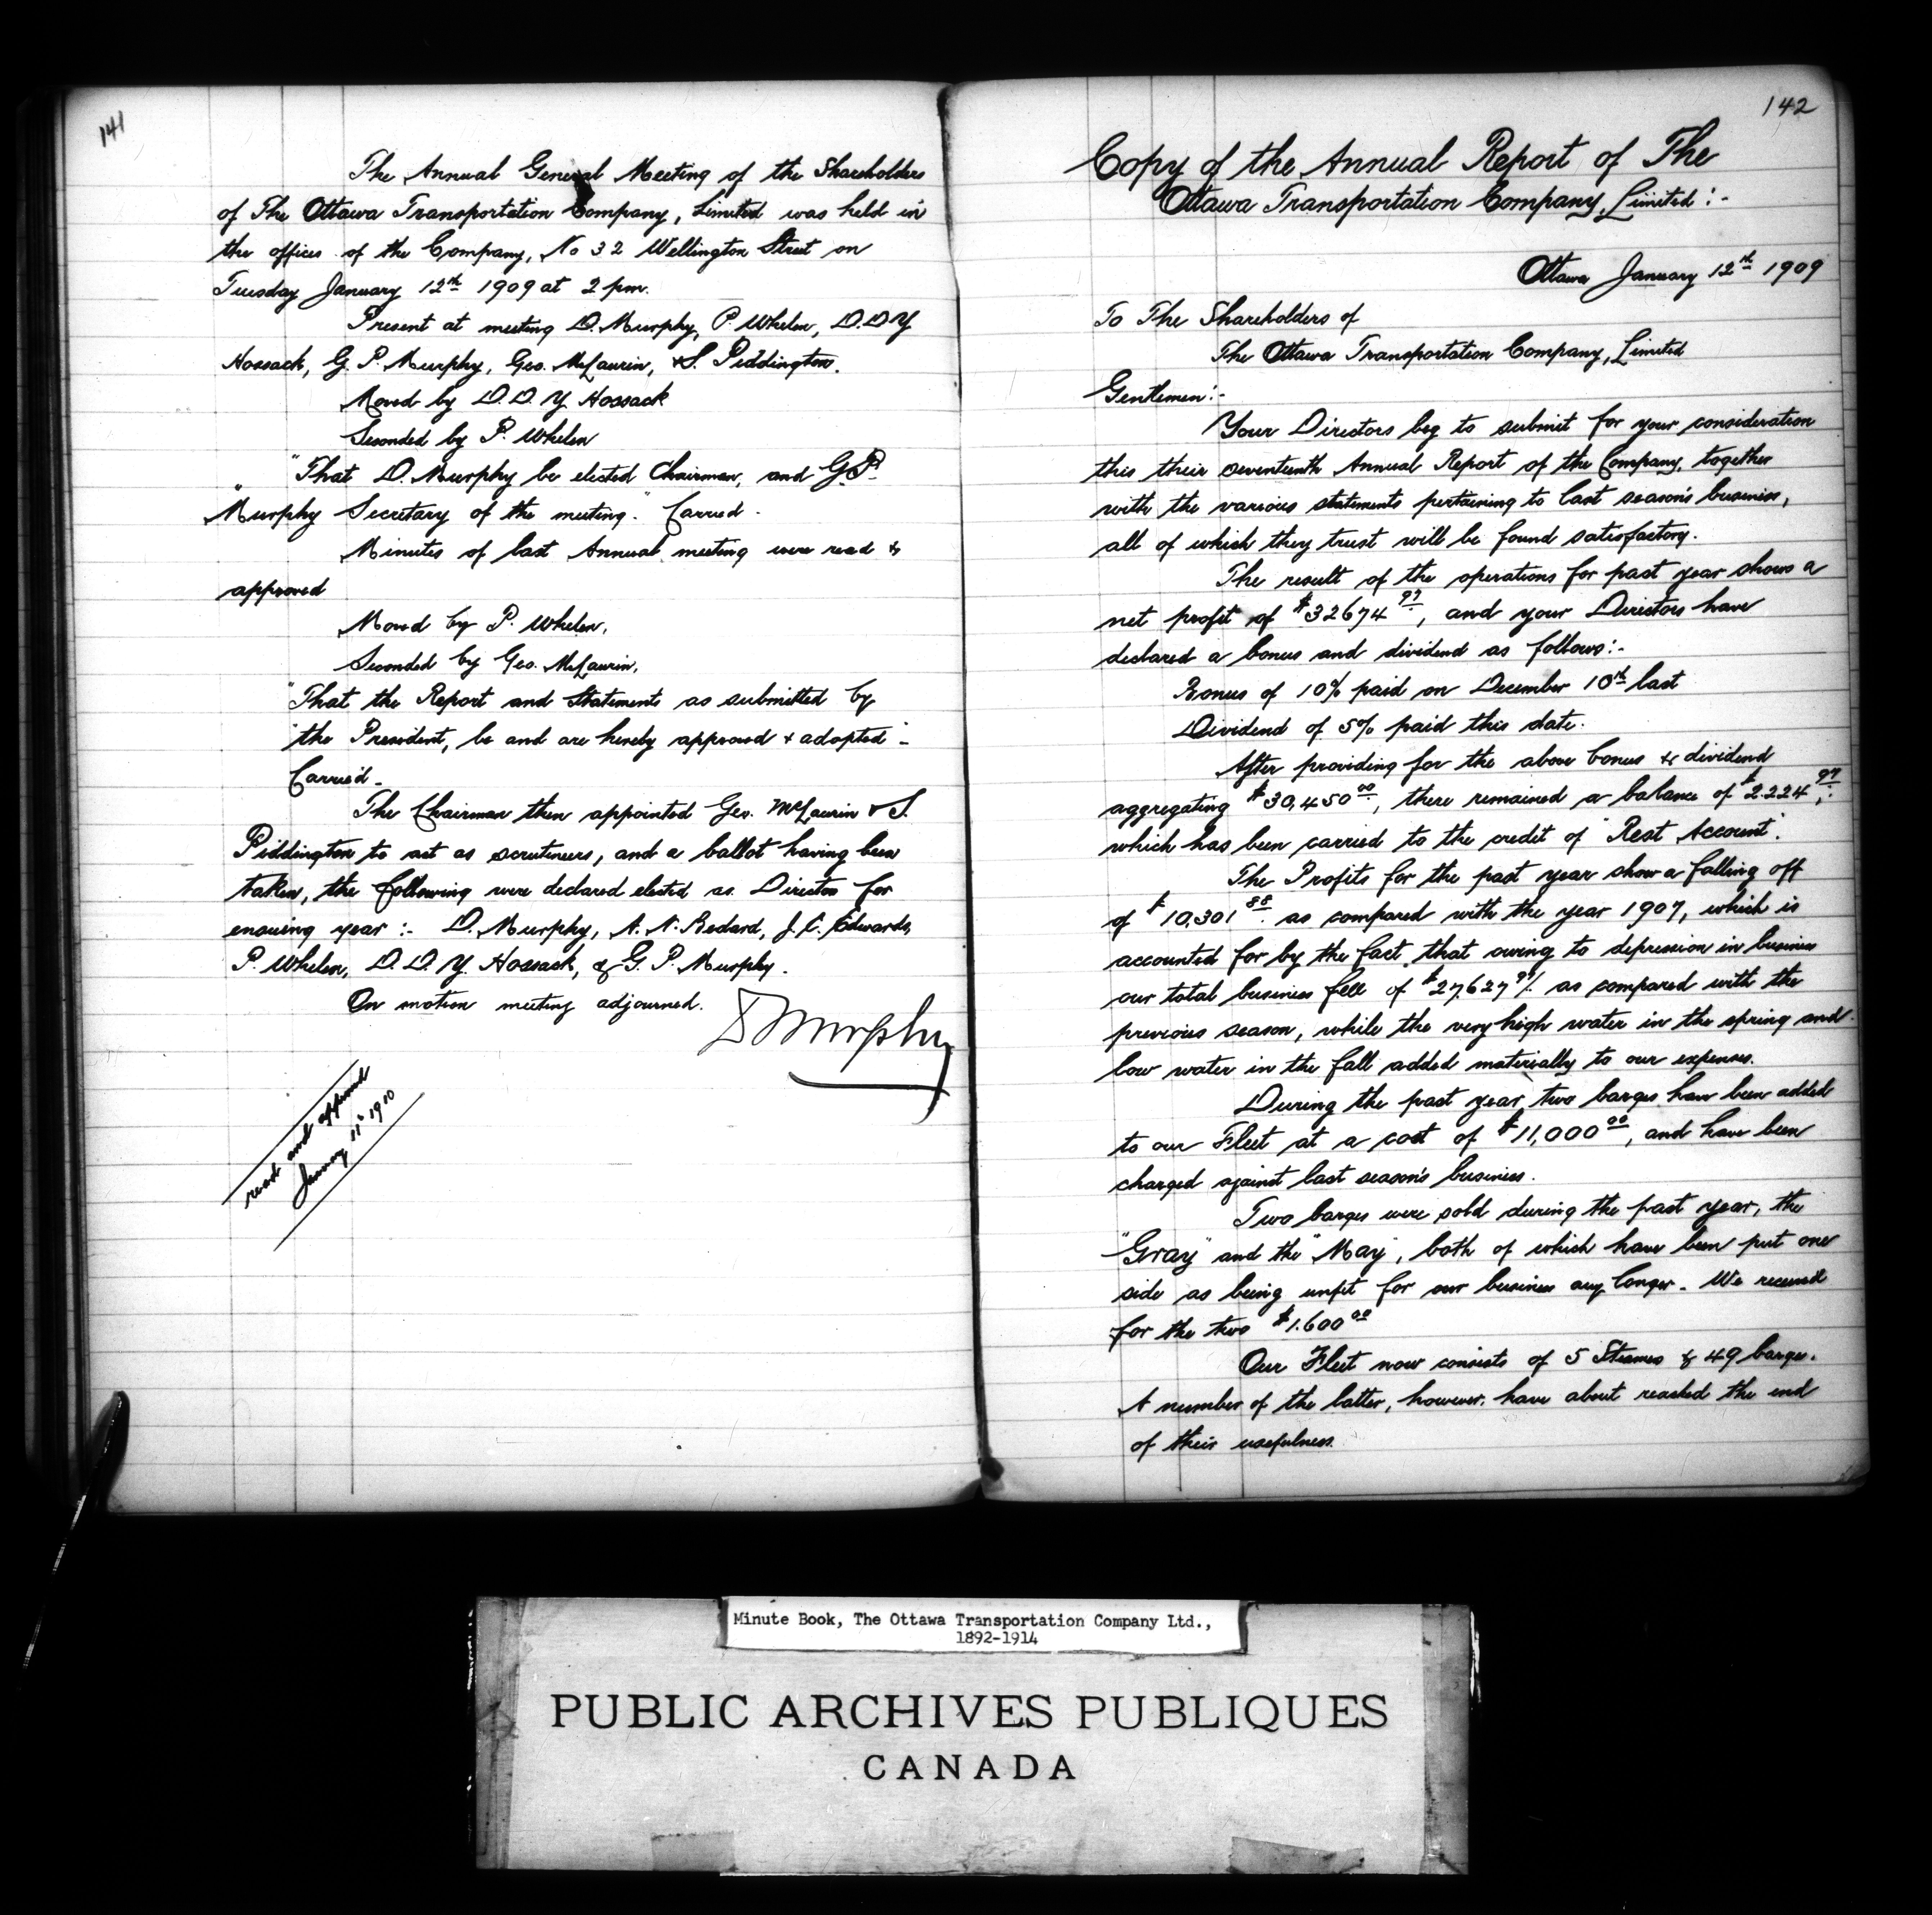 141
The Annual General Meeting of the Shareholders
of The Ottawa Transportation Company, Limited was held in
the offices of the Company, No 32 Wellington Street on
Tuesday January 12th 1909 at 2 pm.
Present at meeting D. Murphy, P. Whelen, D.D.Y
Hossack, G. P. Murphy, Geo. McLaurin, & S. Piddington.
Moved by D. D. Y Hossack
Seconded by P. Whelen
"That D. Murphy be elected Chairman, and G.P.
"Murphy Secretary of the meeting." Carried.
Minutes of last Annual meeting were read &
approved
Moved by P. Whelen,
Seconded by Geo. McLaurin,
"That the Report and Statements as submitted by
"the President, be and are hereby approved & adopted" -
Carried -
The Chairman then appointed Geo. McLaurin & S.
Piddington to act as scrutineers, and a ballot having been
taken, the following were declared elected as Directors for
ensuing year :- D. Murphy, N. N. Bedard, J. C. Edwards,
P. Whelen, D. D. Y. Hossack, & G. P. Murphy.
On motion meeting adjourned.
D Murphy
read and approved
January 11th 1910
142
Copy of the Annual Report of The
Ottawa Transportation Company, Limited :-
Ottawa January 12th 1909
To The Shareholders of
The Ottawa Transportation Company, Limited
Gentlemen:-
Your Directors beg to submit for your consideration
this their seventeenth Annual Report of the Company, together
with the various statements pertaining to last season's business,
all of which they trust will be found satisfactory.
The result of the operations for past year shows a
net profit of $32674 97, and your Directors have
declared a bonus and dividend as follows:-
Bonus of 10% paid on December 10th last
Dividend of 5% paid this date.
After providing for the above bonus & dividend
aggregating $30,450 00, there remained a balance of $2.224 97,
which has been carried to the credit of "Rest Account".
The Profits for the past year show a falling off
of $10,301 88 as compared with the year 1907, which is
accounted for by the fact that owing to depression in business
our total business fell of $27,627 97/. as compared with the
previous season, while the very high water in the spring and
low water in the fall added materially to our expenses.
During the past year two barges have been added
to our Fleet at a cost of $11,000 00, and have been
charged against last season's business.
Two barges were sold during the past year, the
"Gray" and the "May", both of which have been put one
side as being unfit for our business any longer. We received
for the two $1.600 00
Our Fleet now consists of 5 Steamers & 49 barges.
A number of the latter, however, have about reached the end
of their usefulness.
Minute Book, The Ottawa Transportation Company Ltd.,
1892-1914
PUBLIC ARCHIVES PUBLIQUES
CANADA